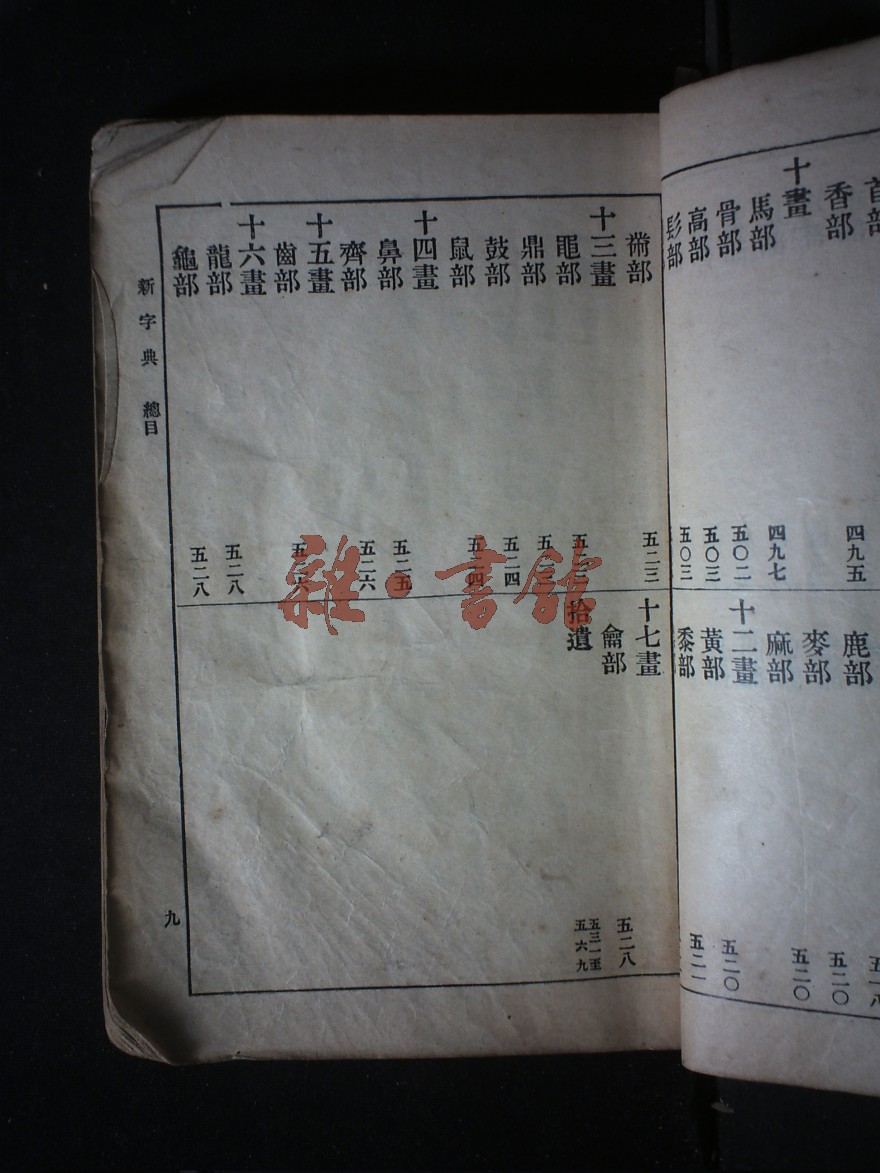 首部
香部
四九五
十畫
馬部
四九七
骨部
五〇二
高部
五〇三
髟部
五〇三
鹿部
麥部
五二〇
麻部
五二〇
十二畫
黃部
五二〇
黍部
五二一
黹部
五二三
十三畫
黽部
鼎部
鼓部
五二四
鼠部
十四畫
鼻部
五二五
齊部
五二六
十五畫
齒部
十六畫
龍部
五二八
龜部
五二八
十七畫
龠部
五二八
拾遺
五三一至
五六九
新字典 總目
九
雜·書館